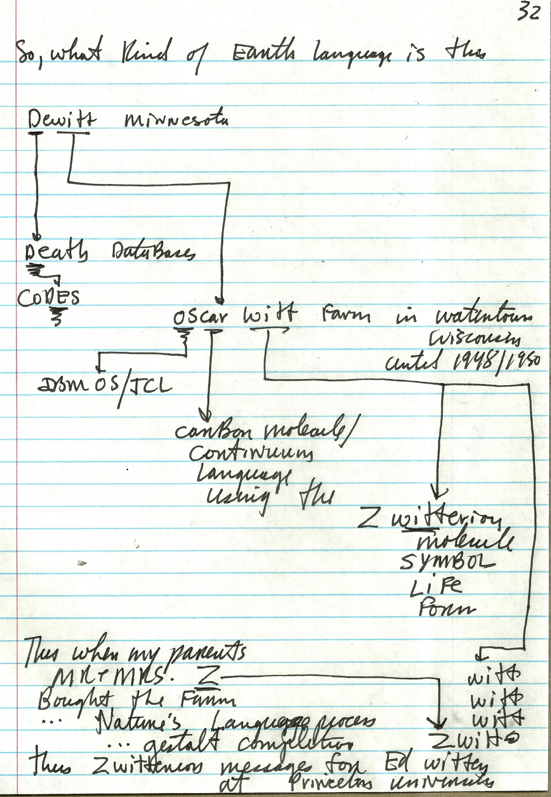 32
So, what Kind of Earth language is this
Dewitt Minnesota
Death DataBases
CODES
OScar Witt Farm in Watertown
Wisconsin
until 1948/1950
IBM OS/JCL
CarBon molecule/
Continuum
Language
using the
Zwitterion
molecule
SYMBOL
LiFe
Form
Thus when my parents
MR + MRS. Z
Bought the Farm
... Nature's Language process
... gestalt completion
thus Zwitterions messages for Ed Witten
at Princeton University
witt
witt
witt
Zwitt